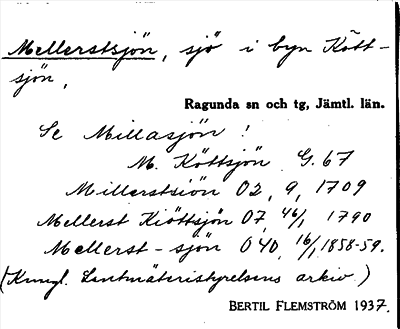 Mellerstsjön, sjö i byn Kött-
sjön,
Ragunda sn och tg, Jämtl. län.
Se Millasjön !
M. Köttsjön G. 67
Millerstsiön O2, 9, 1709
Mellerst Kiöttsjön O7, 46/1, 1790
Mellerst-sjön O40, 16/1, 1858-59.
(Kungl. Lantmäteristyrelsens arkiv)
BERTIL FLEMSTRÖM 1937.